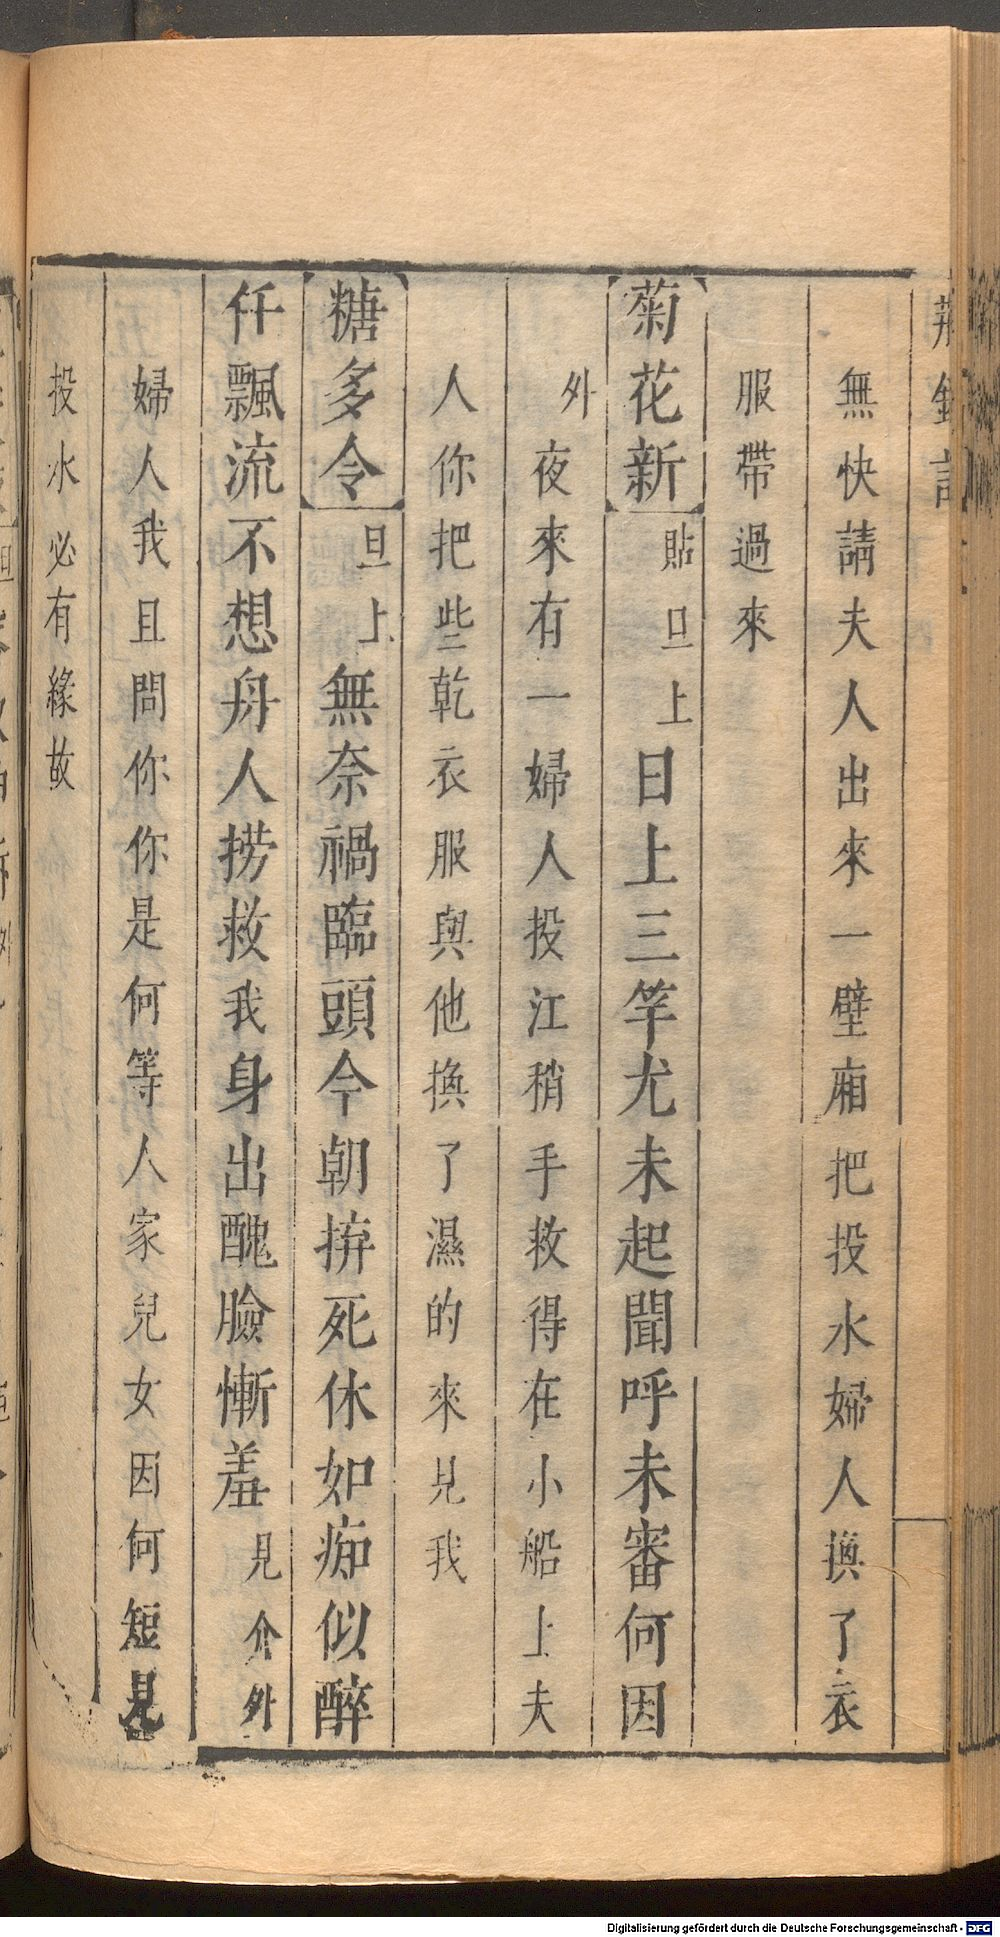 荆釵記
無快請夫人出來一壁廂把投水婦人換了衣
服帶過來
菊花新 貼旦上 日上三竿尤未起聞呼未審何因
外 夜來有一婦人投江稍手救得在小船上夫
人你把些乾衣服與他換了濕的來見我
糖多令 旦上 無奈禍臨頭今朝拚死休如痴似醉
仟飄流不想舟人撈救我身出醜臉慚羞 見介外
婦人我且問你你是何等人家兒女因何短見
投水必有緣故
Digitalisierung gefördert durch die Deutsche Forschungsgemeinschaft - DFG